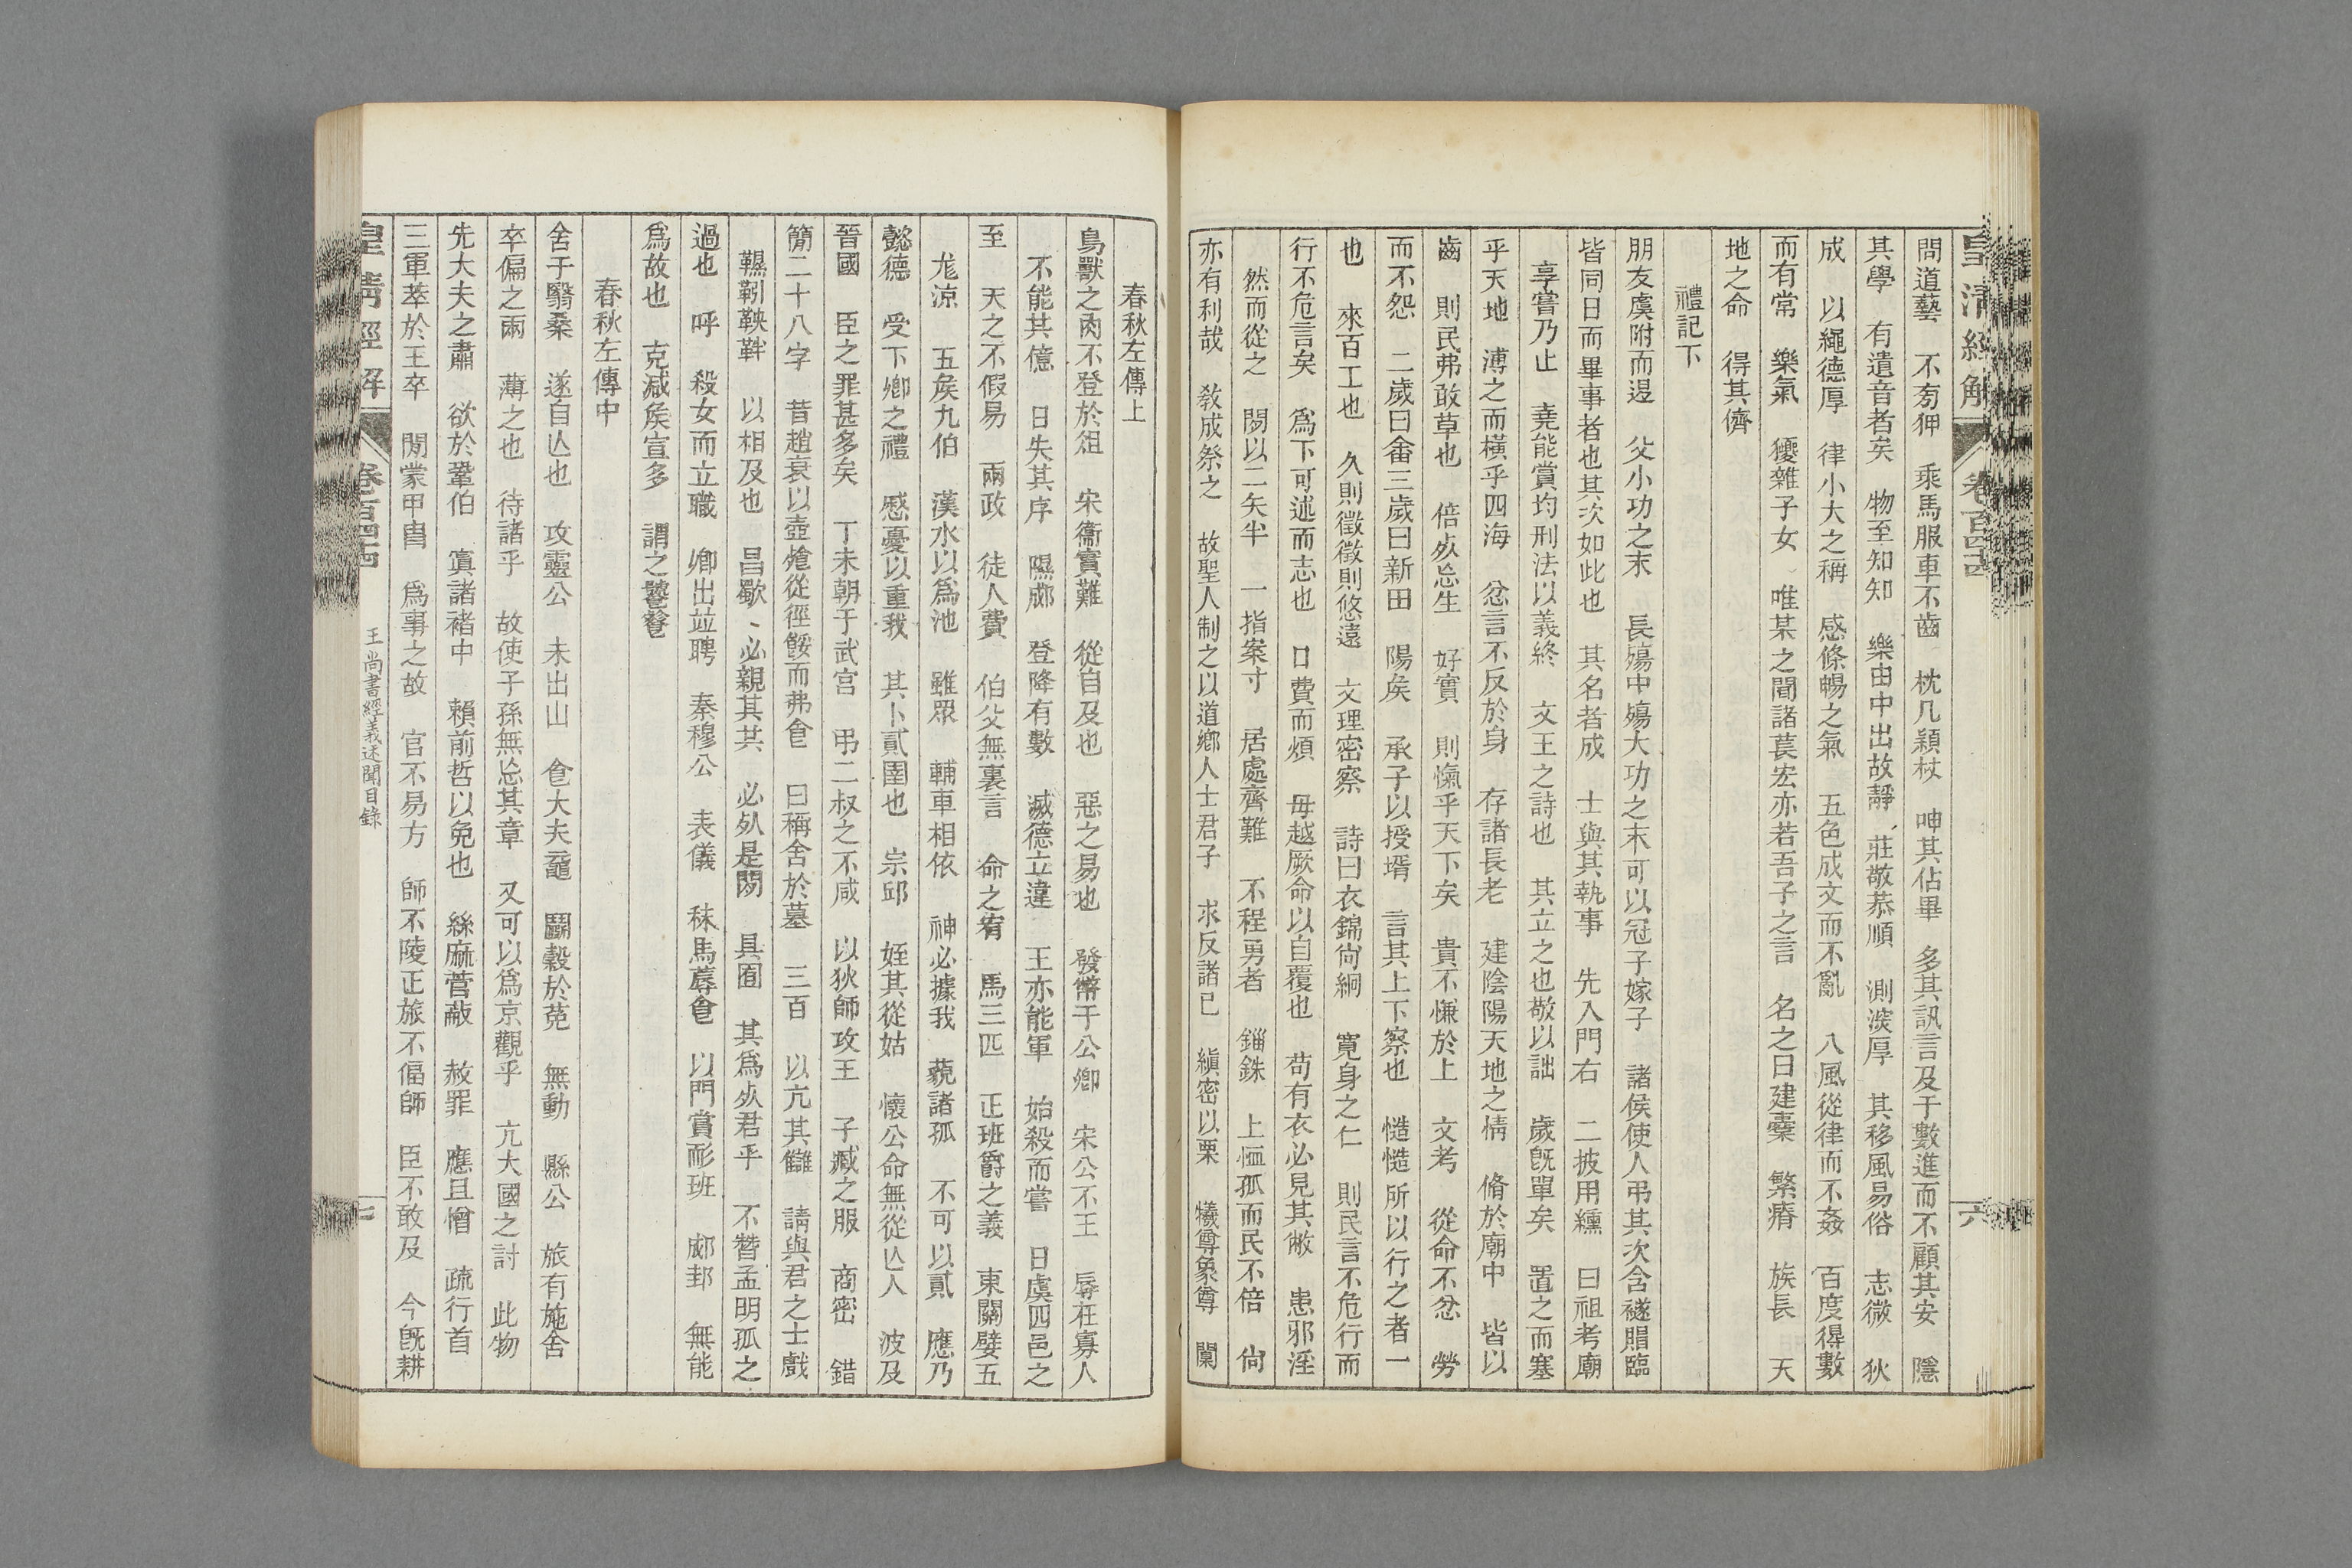 皇清經解
卷百四四
六
問道藝 不芻狎 乘馬服車不齒 枕几熲杖 呻其佔畢 多其訊言及于數進而不顧其安 隱
其學 有遺音者矣 物至知知 樂由中出故靜 莊敬恭順 測淡厚 其移風易俗 志微 狄
成 以繩德厚 律小大之稱 感條暢之氣 五色成文而不亂 八風從律而不姦 百度得數
而有常 樂氣 獶雜子女 唯某之聞諸萇宏亦若吾子之言 名之曰建櫜 繁瘠 族長 天
地之命 得其儕
禮記下
朋友虞附而退 父小功之末 長殤中殤大功之末可以冠子嫁子 諸侯使人弔其次含襚賵臨
皆同日而畢事者也其次如此也 其名者成 士與其執事 先入門右 二披用纁 曰祖考廟
享嘗乃止 堯能賞均刑法以義終 文王之詩也 其立之也敬以詘 歲旣單矣 置之而塞
乎天地 溥之而橫乎四海 忿言不反於身 存諸長老 建陰陽天地之情 脩於廟中 皆以
齒 則民弗敢草也 倍㱙忘生 好實 則愾乎天下矣 貴不慊於上 文考 從命不忿 勞
而不怨 二歲曰畬三歲曰新田 陽矦 承子以授壻 言其上下察也 慥慥 所以行之者一
也 來百工也 久則徵徵則悠遠 文理密察 詩曰衣錦尙絅 寛身之仁 則民言不危行而
行不危言矣 爲下可述而志也 口費而煩 毋越厥命以自覆也 苟有衣必見其敝 患邪淫
然而從之 閒以二矢半 一指案寸 居處齊難 不程勇者 錙銖 上恤孤而民不倍 尙
亦有利哉 敎成祭之 故聖人制之以道鄉人士君子 求反諸己 縝密以栗 犧尊象尊 闑
春秋左傳上
鳥獸之肉不登於俎 宋衞實難 從自及也 惡之易也 發幣于公卿 宋公不王 辱在寡人
不能其億 日失其序 隰郕 登降有數 滅德立違 王亦能軍 始殺而嘗 日虞四邑之
至 天之不假易 兩政 徒人費 伯父無裏言 命之宥 馬三匹 正班爵之義 東關嬖五
尨涼 五矦九伯 漢水以爲池 雖眾 輔車相依 神必據我 藐諸孤 不可以貳 應乃
懿德 受下卿之禮 慼憂以重我 其卜貳圉也 宗邱 姪其從姑 懷公命無從亾人 波及
晉國 臣之罪甚多矣 丁未朝于武宮 弔二叔之不咸 以狄師攻王 子臧之服 商密 錯
簡二十八字 昔趙衰以壺飱從徑餒而弗食 曰稱舍於墓 三百 以亢其讎 請與君之士戲
韅靷鞅靽 以相及也 昌歜 必親其共 必㱙是閒 具囿 其爲㱙君乎 不替孟明孤之
過也 呼 殺女而立職 卿出竝聘 秦穆公 表儀 秣馬蓐食 以門賞耏班 郕邽 無能
爲故也 克減矦宣多 謂之饕餮
春秋左傳中
舍于翳桑 遂自亾也 攻靈公 未出山 食大夫黿 鬭穀於菟 無動 縣公 旅有施舍
卒偏之兩 薄之也 待諸乎 故使子孫無忘其章 又可以爲京觀乎 亢大國之討 此物
先大夫之肅 欲於鞏伯 寘諸褚中 賴前哲以免也 絲麻菅蒯 赦罪 應且憎 疏行首
三軍萃於王卒 閒蒙甲冑 爲事之故 官不易方 師不陵正旅不偪師 臣不敢及 今旣耕
皇清經解
卷百四四
王尙書經義述聞目錄
七